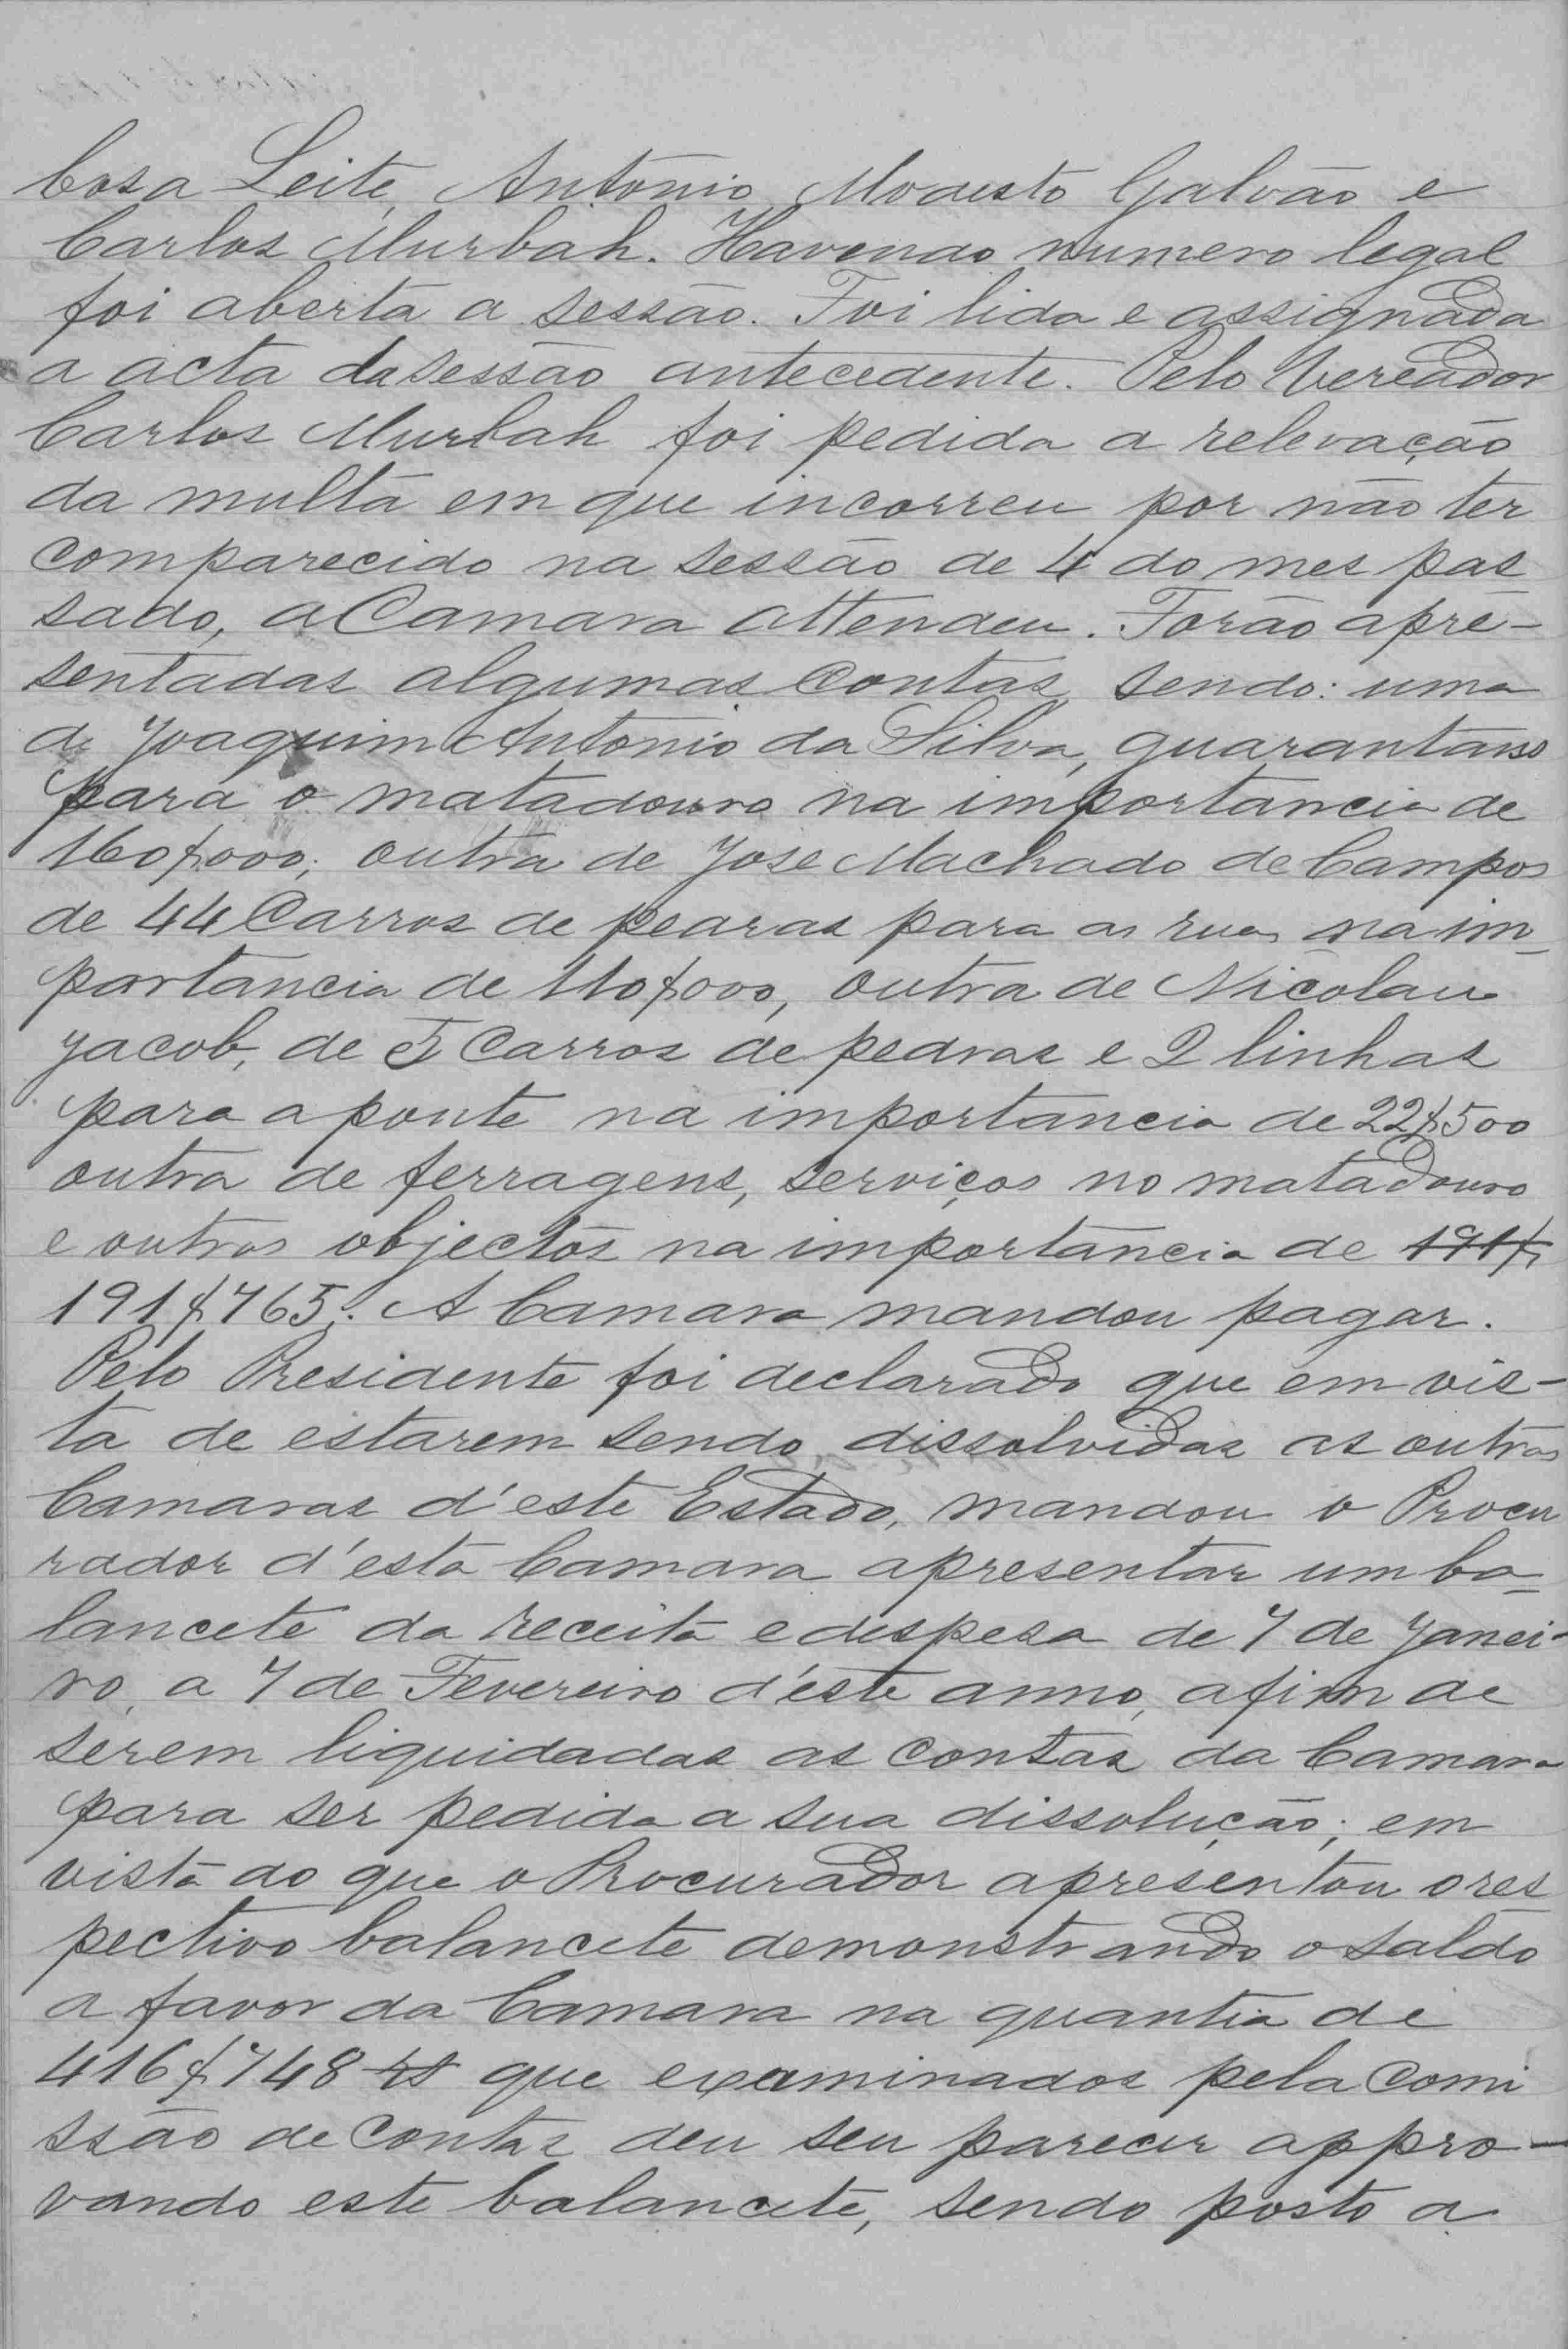 bosa Leite, Antonio Modesto Galvão e
Carlos Murbah. Havendo numero legal
foi aberta a sessão. Foi lida e assignada
a acta da sessão antecedente. Pelo Vereador
Carlos Murbah foi pedida a relevação
da multa em que incorreu por não ter
comparecido na sessão de 4 do mes pas
sado, a Camara attendeu. Forão apre-
sentadas algumas contas, sendo: uma
de Joaquim Antonio da Silva, guarantans
para o matadouro na importancia de
160$000; outra de Jose Machado de Campos
de 44 Carros de pedras para as ruas na im-
portancia de 110$000, outra de Nicolau
Jacob, de 5 Carros de pedras e 2 linhas
para a ponte na importancia de 22$500
outra de ferragens, serviços no matadouro
e outros objectos na importancia de 191$
191$765. A Camara mandou pagar.
Pelo Presidente foi declarado que em vis-
ta de estarem sendo dissolvidas as outras
Camaras d'este Estado, mandou o Procu
rador d'esta Camara apresentar um ba-
lancete da receita e despesa de 7 de Janei-
ro, a 7 de Fevereiro d'este anno, afim de
serem liquidadas as contas da Camara
para ser pedida a sua dissolução; em
vista do que o Procurador apresentou o res
pectivo balancete demonstrando o saldo
a favor da Camara na quantia de
416$748 rs que examinados pela Comi
ssão de Contas deu seu parecer appro-
vando este balancete, sendo posto a